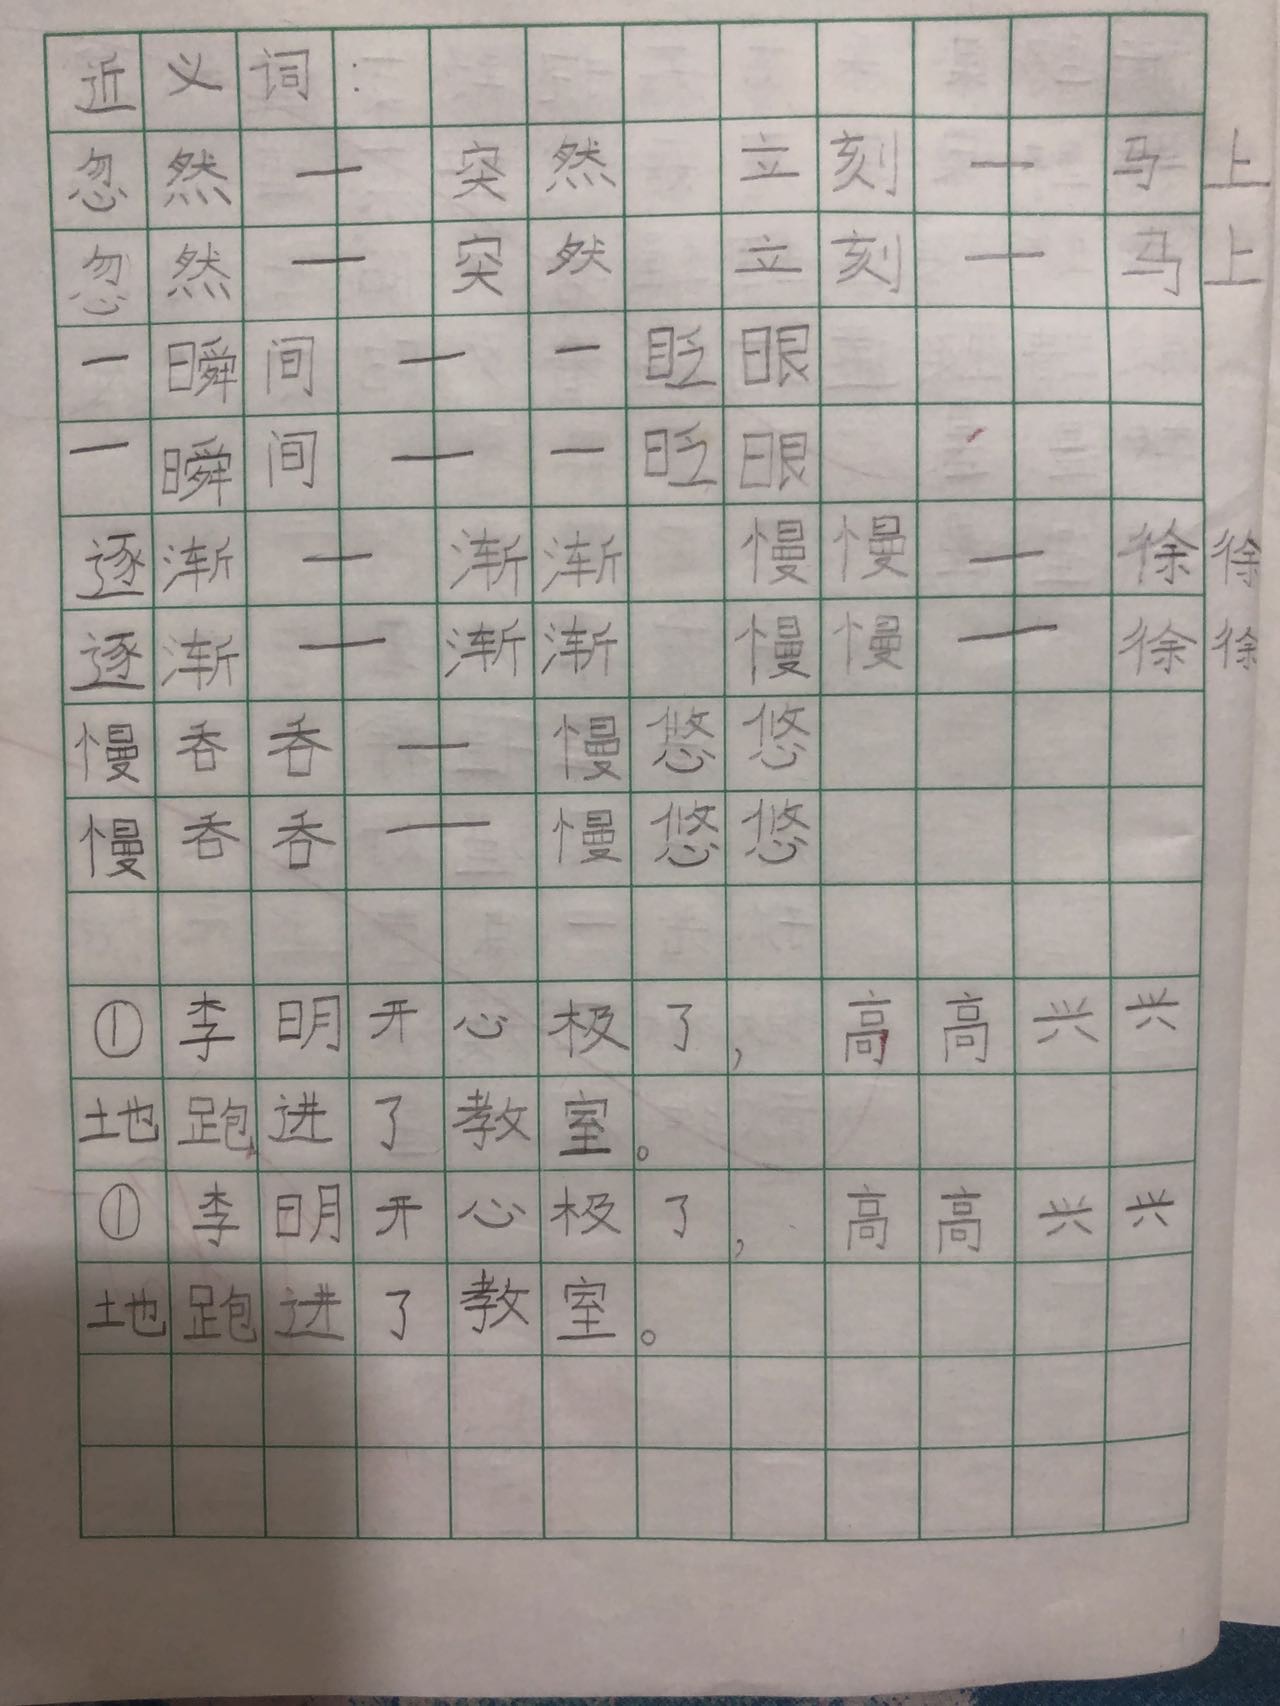 近义词：
忽然——突然 立刻——马上
忽然——突然 立刻——马上
一瞬间——一眨眼
一瞬间——一眨眼
逐渐——渐渐 慢慢——徐徐
逐渐——渐渐 慢慢——徐徐
慢吞吞——慢悠悠
慢吞吞——慢悠悠
①李明开心极了，高高兴兴
地跑进了教室。
①李明开心极了，高高兴兴
地跑进了教室。